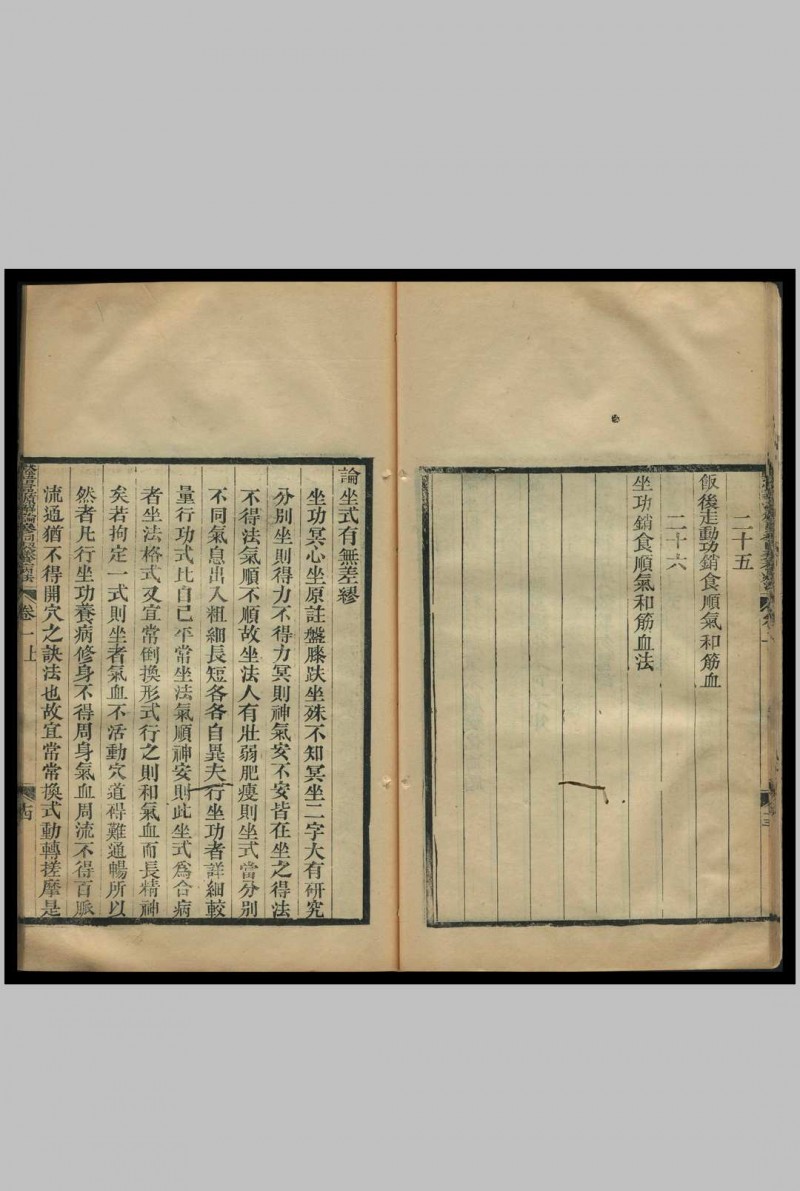 二十五
飯後走動功銷食順氣和筋血
二十六
坐功銷食順氣和筋血法
論坐式有無差繆
坐功冥心坐原註盤膝趺坐殊不知冥坐二字大有研究
分別坐則得力不得力冥則神氣安不安皆在坐之得法
不得法氣順不順故坐法人有壯弱肥瘦則坐式當分別
不同氣息出入粗細長短各各自異夫行坐功者詳細較
量行功式比自己平常坐法氣順神安則此坐式爲合病
者坐法格式又宜常倒換形式行之則和氣血而長精神
矣若拘定一式則坐者氣血不活動穴道得難通暢所以
然者凡行坐功養病修身不得周身氣血周流不得百脈
流通猶不得開穴之訣法也故宜常常換式動轉搓摩是
卷一上
古